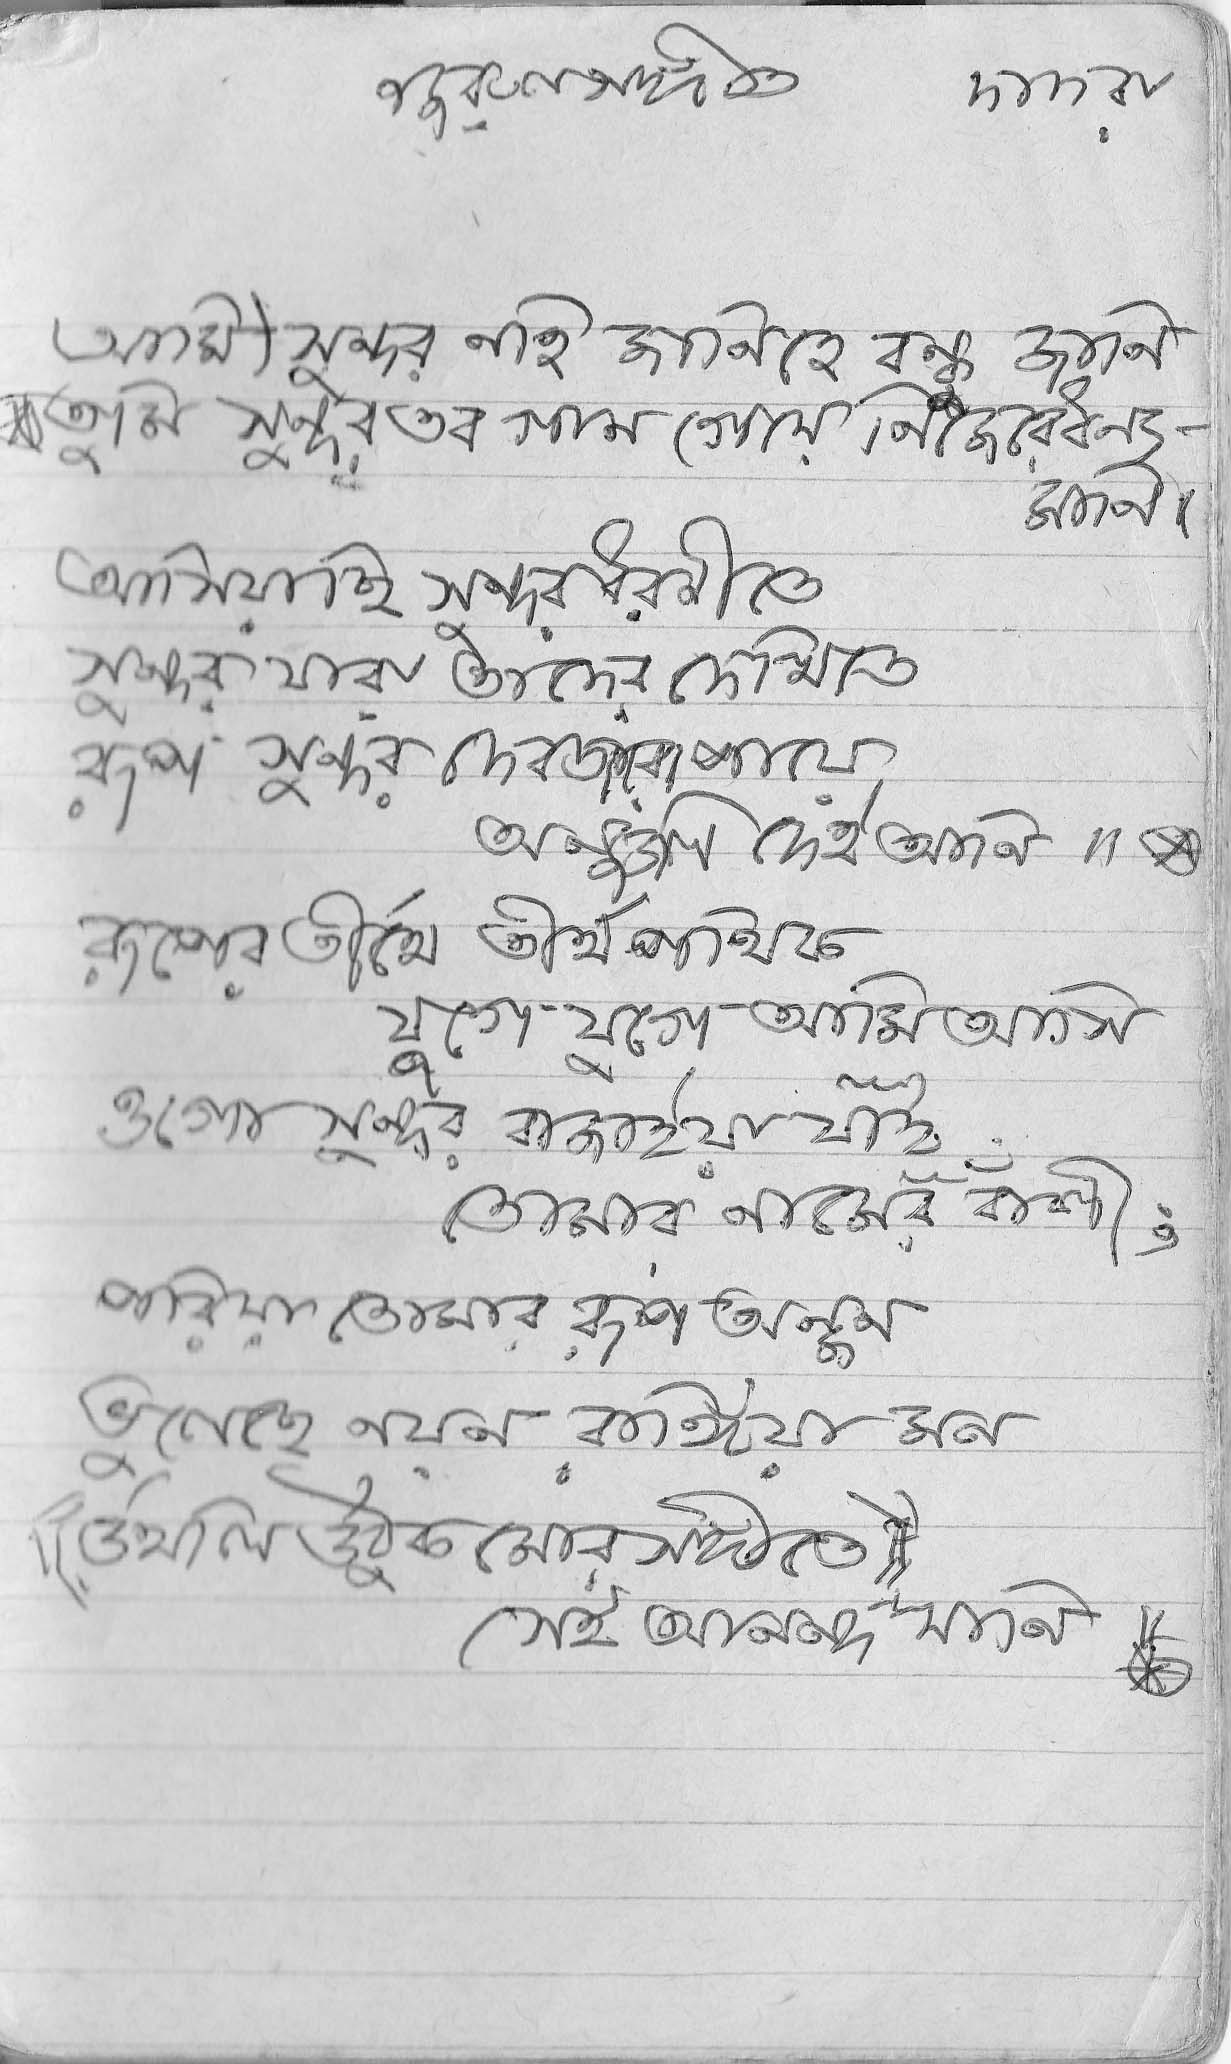 নজরুল সঙ্গীত দাদরা
আমি সুন্দর নহি জানিহে বন্ধু জানি
তুমি সুন্দর তব গান গেয়ে নিজেরে ধন্য-
মানি।
আসিয়াছি সুন্দর ধরণীতে
সুন্দর যারা তাদের দেখিতে
রূপ সুন্দর দেবতার পায়ে
অঞ্জলি দেই আনি ॥
রূপের তীর্থে তীর্থ পথিক
যুগে যুগে আমি আসি
ওগো সুন্দর বাজাইয়া যাই
তোমার নামের বাঁশী;
পরিয়া তোমার রূপ অঞ্জন
ভুলেছে নয়ন রাঙিয়া মন
উথলি উঠুক মোর সঙ্গীতে
সেই আনন্দ খানি ॥